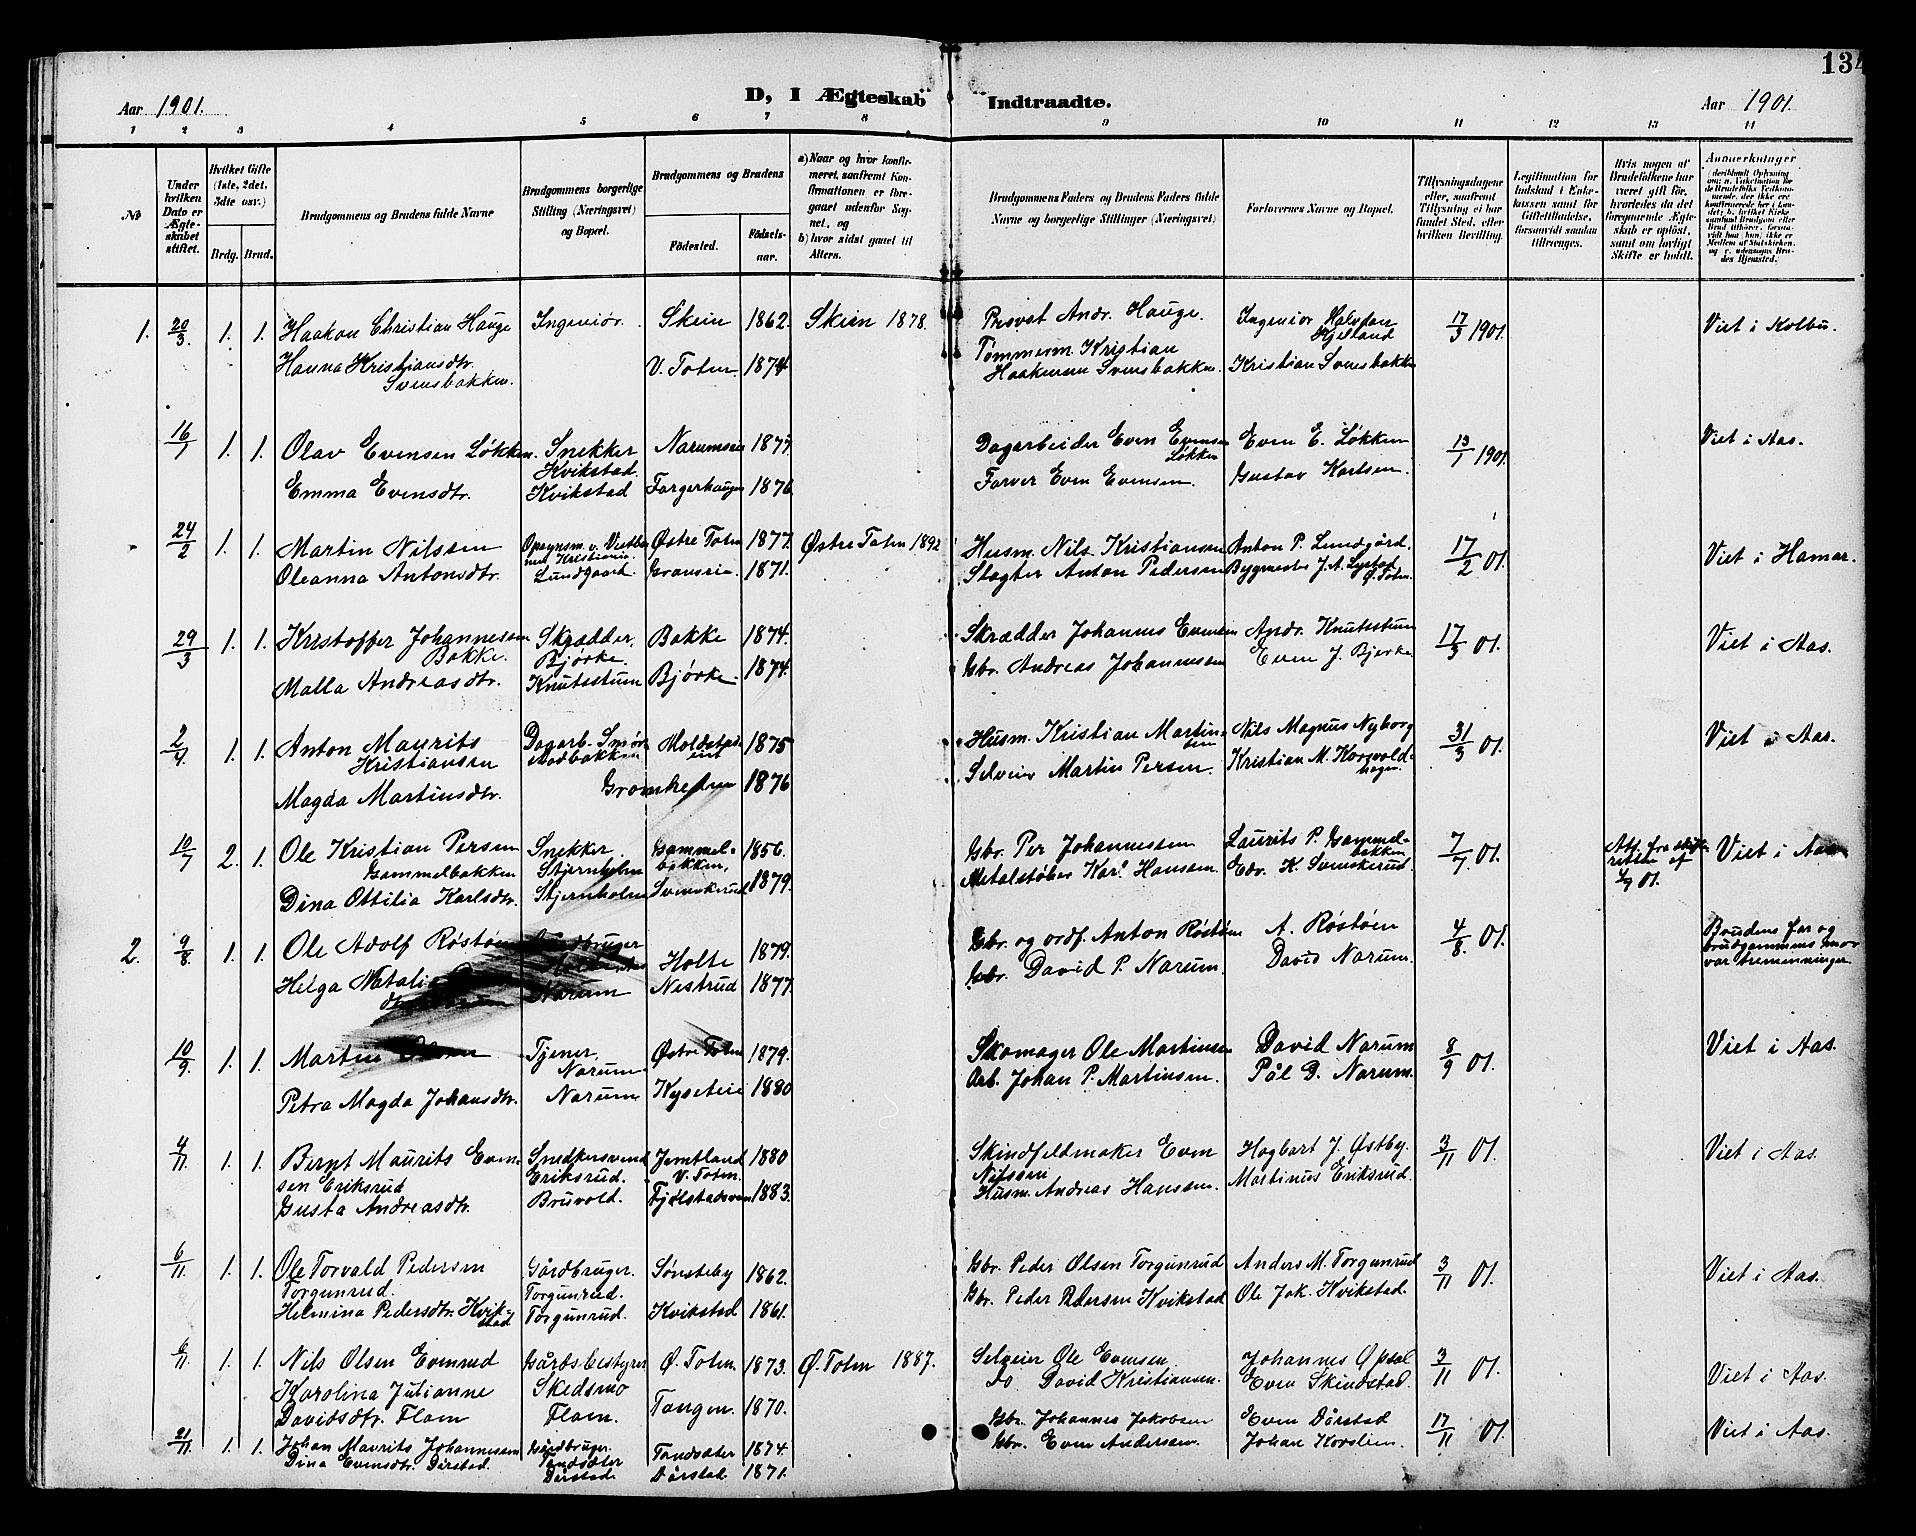 134
Aar 1901.
D, I Ægteskab Indtraadte.
Aar 1901.
1 2 3 4 5 6 7 8 9 10 11 12 13 14
No
Under hvilken Dato er Ægteskabet stiftet.
Hvilket Gifte (1ste, 2det, 3die osv.)
Brdg. Brud.
Brudgommens og Brudens fulde Navne
Brudgommens borgerlige Stilling (Næringsvei) og Bopæl.
Brudgommens og Brudens
Födested.
Födselsaar.
a) Naar og hvor konfirmeret, saafremt Konfirmationen er foregaaet udenfor Sognet, og
b) hvor sidst gaaet til Alters.
Brudgommens Faders og Brudens Faders fulde Navne og borgerlige Stillinger (Næringsvei)
Forlovernes Navne og Bopæl.
Tillysningsdagene eller, saafremt Tillysning ei har fundet Sted, efter hvilken Bevilling.
Legitimation for Indskud i Enkekassen samt for Giftetilladelse, forsaavidt saadan tiltrænges.
Hvis nogen af Brudefolkene har været gift før, hvorledes da det foregaaende Ægteskab er opløst, samt om lovligt Skifte er holdt.
Anmærkninger
1. 20/3 1. 1. Haakon Christian Hauge Ingeniør. Skien 1862. Skien 1878. Provst Andr. Hauge. Ingeniør Halvdan Hjelland 17/3 1901. Viet i Kolbu.
Hanna Kristiansdtr. Svensbakken. V. Toten. 1874. Tømmerm. Kristian Haakensen Svensbakken. Kristian Svensbakken
16/1 1. 1. Olav Evensen Løkken. Snekker Kvikstad. 1877. Dagarbeider Even Evensen Løkken Even E. Løkken 13/1 1901. Viet i Aas.
Emma Evensdtr. Kvikstad Fargerhaugen 1876 Farver Even Evensen. Gustav Karlsen.
24/2 1. 1. Martin Nilssen Østre Toten 1877. Østre Toten 1892 Husm. Nils Kristiansen Anton P. Lundgård. 17/2 01. Viet i Hamar.
Oleanna Antonsdtr. Lundgaard. 1871. Slagter Anton Pedersen Bygmester J. A. Lystad Ø. Toten.
29/3 1. 1. Kristoffer Johannessen Bakke. Skrædder, Bjørke. Bakke 1874. Skrædder Johannes Evensen Andr. Knutsstuen 17/3 01. Viet i Aas.
Malla Andreasdtr. Knutsstuen Bjørke. 1874. Gbr. Andreas Johannessen Even J. Bjerke.
2/4 1. 1. Anton Maurits Kristiansen Dagarb. 1875 Husm. Kristian Martinsen Nils Magnus Nyborg 31/3 01. Viet i Aas.
Magda Martinsdtr. Gronheden 1876 Selveier Martin Persen. Kristian M. Korsvoldhagen.
10/7 2. 1. Ole Kristian Persen Gammelbakken Snekker Stjernholm Gammelbakken, 1856. Gbr. Per Johannessen Laurits P. Gammelbakken 7/7 01. Att. fra skifteretten af 4/7 01. Viet i Aas
Dina Ottilia Karlsdtr. Stjernholm Svenskerud 1879. Metalstøber Karl Hansen. Edv. K. Svenskerud.
2. 9/8. 1. 1. Ole Adolf Røstøen Gårdbruger Holte 1879. Gbr. og ordf. Anton Røstøen A. Røstøen 4/8. 01. Brudens far og brudgommens mor var tremenninger.
Helga Natalie Narum Nestrud 1877. Gbr. David P. Narum. David Narum.
10/9. 1. 1. Martin Tjener, Narum. Østre Toten 1879. Skomager Ole Martinsen David Narum 8/9 01. Viet i Aas.
Petra Magda Johansdtr. Narum Kyseteie 1880 Arb. Johan P. Martinsen. Pål D. Narum.
4/11. 1. 1. Bernt Maurits Evensen Eriksrud Snedkersvend Eriksrud. Jemtland V. Toten. 1880 Skindfeldmaker Even Nilssen Hagbart J. Østby. 3/11 01. Viet i Aas.
Gusta Andreasdtr. Bruvold. Fjelstadsveen 1883. Husm. Andreas Hansen. Martinus Eriksrud.
6/11. 1. 1. Ole Torvald Pedersen Torgunrud. Gårdbruger. Torgunrud. Sønsteby 1862. Gbr. Peder Olsen Torgunrud Anders M. Torgunrud 3/11 01. Viet i Aas.
Helmina Pedersdtr. Kvikstad Torgunrud. Kvikstad 1861. Gbr. Peder Pedersen Kvikstad Ole Joh. Kvikstad.
6/11. 1. 1. Nils Olsen Evenrud Gårdsbestyrer Skedsmo Ø. Toten. 1873. Ø. Toten 1887. Selveier Ole Evensen Johannes Opsal 3/11 01. Viet i Aas.
Karolina Julianne Davidsdtr. Flam Flam. Tangen. 1870. do David Kristiansen. Even Skindstad.
21/11. 1. 1. Johan Maurits Johannessen Gårdbruger. Tandsæter Tandsæter 1874. Gbr. Johannes Jakobsen Even Dårstad 17/11 01. Viet i Aas.
Dina Evensdtr. Dårstad. Dårstad Dårstad 1871. Gbr. Even Andersen. Johan Korslien.